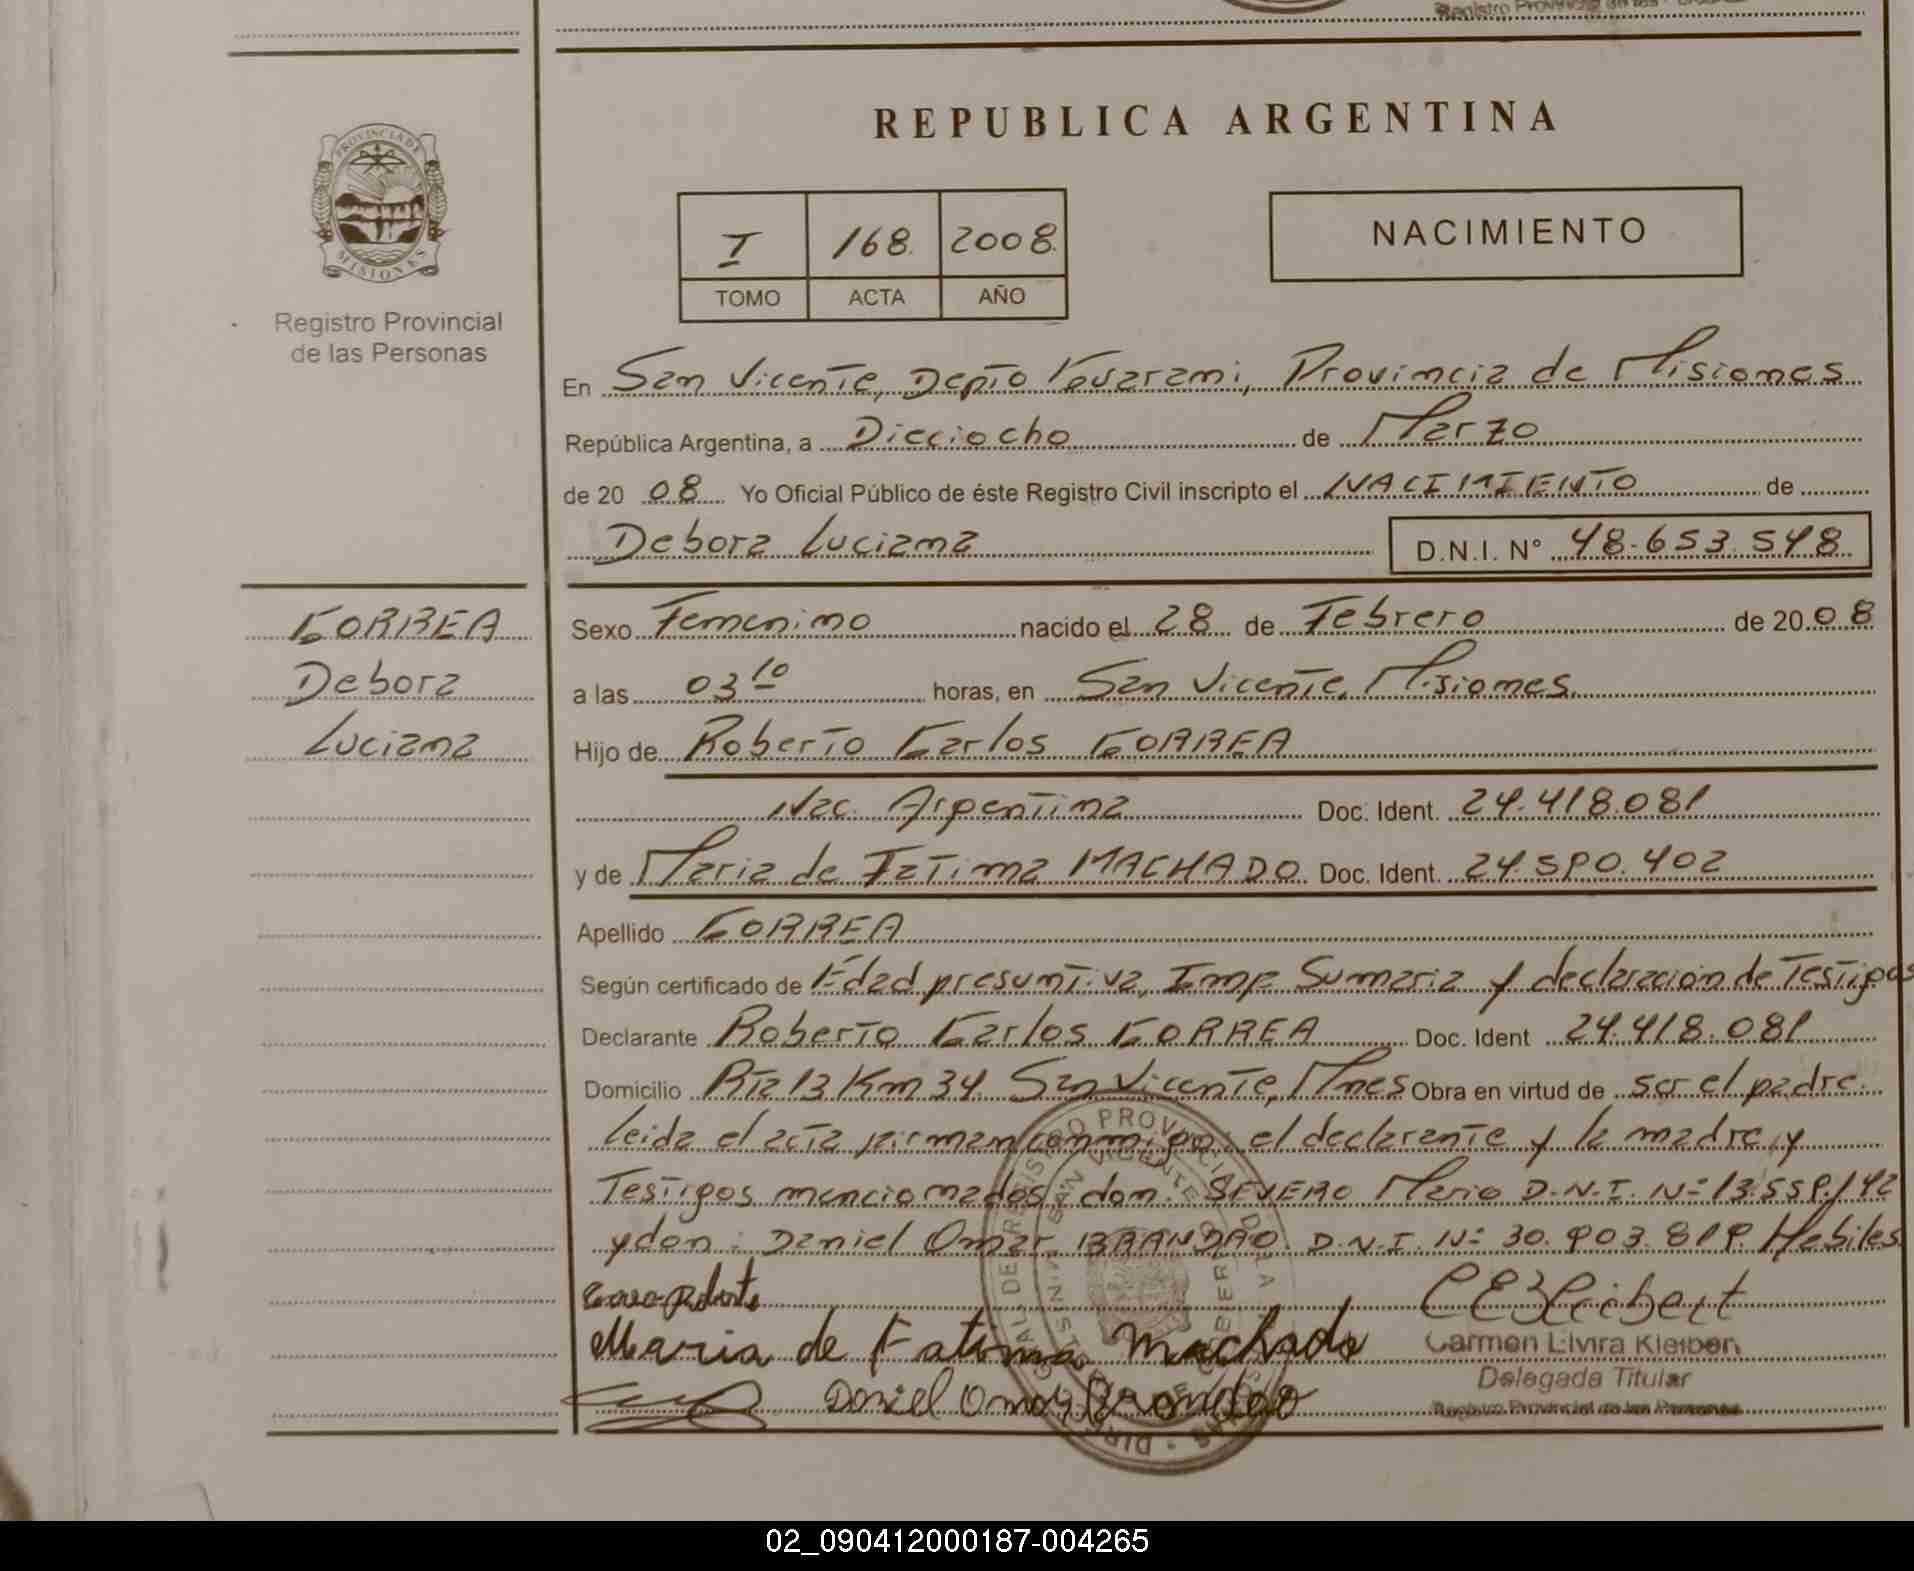 REPUBLICA ARGENTINA
PROVINCIA DE
MISIONES
Registro Provincial
de las Personas
I 168. 2008.
TOMO ACTA AÑO
NACIMIENTO
En San Vicente, Depto Guarani, Provincia de Misiones
República Argentina, a Dieciocho de Marzo
de 20 08 Yo Oficial Público de éste Registro Civil inscripto el NACIMIENTO de
Debora Luciana D.N.I. N° 48.653.548
CORREA
Debora
Luciana
Sexo Femenino nacido el 28 de Febrero de 20 08
a las 03 10 horas, en San Vicente, Misiones
Hijo de Roberto Carlos CORREA
Nac. Argentina Doc. Ident. 24.418.081
y de Maria de Fatima MACHADO Doc. Ident. 24.590.402
Apellido CORREA
Según certificado de Edad presuntiva, Imf. Sumaria y declaración de Testigos
Declarante Roberto Carlos CORREA Doc. Ident 24.418.081
Domicilio Rta 13 Km 34. San Vicente, Mnes Obra en virtud de ser el padre.
Leida el acta firman conmigo, el declarante y la madre, y
Testigos mencionados don: SEVERO Mario D.N.I. N° 13.559.142
y don: Daniel Omar BRANDAO D.N.I. N° 30.903.819. Habiles
Correa Roberto
Maria de Fatima Machado
Daniel Omar Brandao
Carmen Elvira Kleibert
Delegada Titular
Registro Provincial de las Personas
02_090412000187-004265